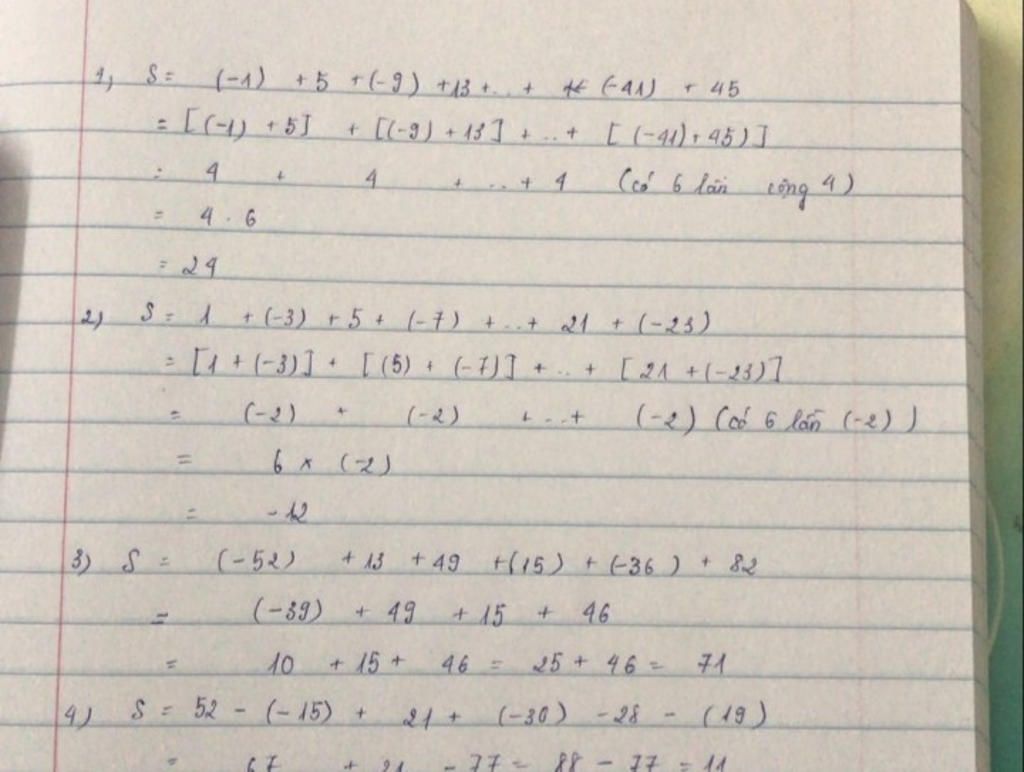 1) S = (-1) + 5 + (-9) + 13 + .. + (-41) + 45
= [(-1) + 5] + [(-9) + 13] + .. + [(-41) + 45)]
= 4 + 4 + .. + 4 (có 6 lần cộng 4)
= 4 . 6
= 24
2) S = 1 + (-3) + 5 + (-7) + .. + 21 + (-23)
= [1 + (-3)] + [(5) + (-7)] + .. + [21 + (-23)]
= (-2) + (-2) + .. + (-2) (có 6 lần (-2))
= 6 x (-2)
= -12
3) S = (-52) + 13 + 49 + (15) + (-36) + 82
= (-39) + 49 + 15 + 46
= 10 + 15 + 46 = 25 + 46 = 71
4) S = 52 - (-15) + 21 + (-30) - 28 - (19)
= 67 + 21 - 77 = 88 - 77 = 11